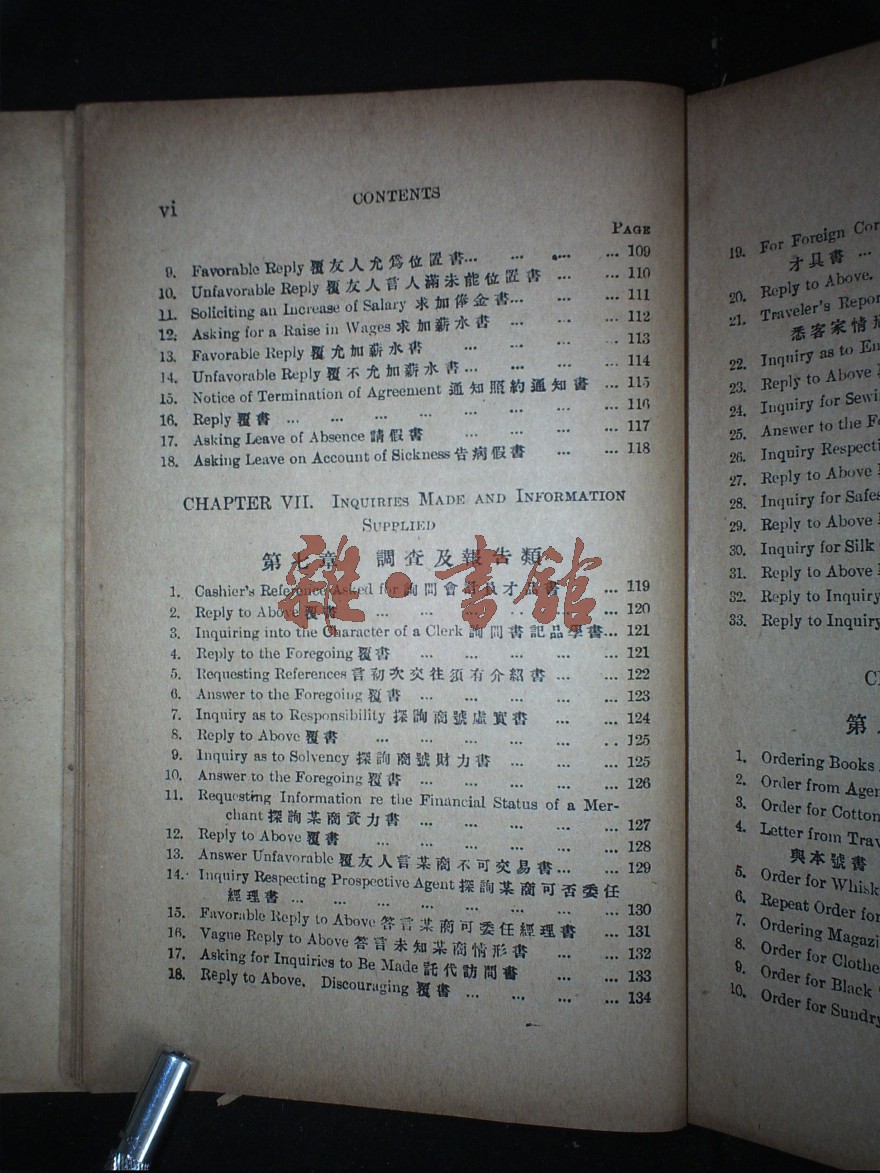 vi
CONTENTS
PAGE
9. Favorable Reply 覆友人允爲位置書... ... ... ... 109
10. Unfavorable Reply 覆友人言人滿未能位置書 ... ... 110
11. Soliciting an Increase of Salary 求加俸金書... ... ... 111
12. Asking for a Raise in Wages 求加薪水書 ... ... ... 112
13. Favorable Reply 覆允加薪水書 ... ... ... ... 113
14. Unfavorable Reply 覆不允加薪水書... ... ... ... 114
15. Notice of Termination of Agreement 通知照約通知書 ... 115
16. Reply 覆書 ... ... ... ... ... ... ... ... 116
17. Asking Leave of Absence 請假書 ... ... ... ... 117
18. Asking Leave on Account of Sickness 告病假書 ... ... 118
CHAPTER VII. INQUIRIES MADE AND INFORMATION
SUPPLIED
第七章 調查及報告類
雜·書館
1. Cashier's Reference Asked for 詢問會書 ... 119
2. Reply to Above 覆書 ... ... ... ... ... ... 120
3. Inquiring into the Character of a Clerk 詢問書記品學書... 121
4. Reply to the Foregoing 覆書 ... ... ... ... ... 121
5. Requesting References 言初次交往須有介紹書 ... ... 122
6. Answer to the Foregoing 覆書 ... ... ... ... ... 123
7. Inquiry as to Responsibility 探詢商號虛實書 ... ... 124
8. Reply to Above 覆書 ... ... ... ... ... ... 125
9. Inquiry as to Solvency 探詢商號財力書 ... ... ... 125
10. Answer to the Foregoing 覆書 ... ... ... ... ... 126
11. Requesting Information re the Financial Status of a Mer-
chant 探詢某商資力書 ... ... ... ... ... 127
12. Reply to Above 覆書 ... ... ... ... ... ... 128
13. Answer Unfavorable 覆友人言某商不可交易書... ... 129
14. Inquiry Respecting Prospective Agent 探詢某商可否委任
經理書 ... ... ... ... ... ... ... ... 130
15. Favorable Reply to Above 答言某商可委任經理書 ... 131
16. Vague Reply to Above 答言未知某商情形書 ... ... 132
17. Asking for Inquiries to Be Made 託代訪問書 ... ... 133
18. Reply to Above, Discouraging 覆書 ... ... ... ... 134
19. For Foreign
才具書 ...
20. Reply to Above.
21. Traveler's
悉客家情
22. Inquiry as to
23. Reply to Above
24. Inquiry for
25. Answer to the
26. Inquiry
27. Reply to Above
28. Inquiry for
29. Reply to Above
30. Inquiry for Silk
31. Reply to Above
32. Reply to Inquiry
33. Reply to Inquiry
第
1. Ordering Books
2. Order from
3. Order for Cotton
4. Letter from
與本號書
5. Order for
6. Repeat Order for
7. Ordering
8. Order for
9. Order for Black
10. Order for